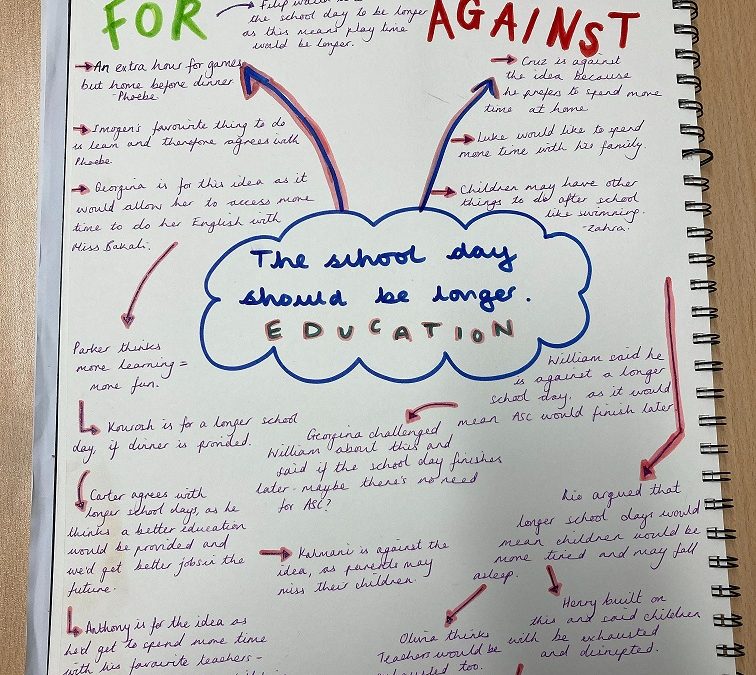 FOR
the school day to be longer
as this means play time
would be longer.
AGAINST
→ An extra hour for games
but home before dinner
- Phoebe
→ Imogen's favourite thing to do
is learn and therefore agrees with
Phoebe
→ Georgina is for this idea as it
would allow her to access more
time to do her English with
Miss Bakali.
Parker thinks
more learning =
more fun.
Kourosh is for a longer school
day, if dinner is provided.
Carter agrees with
longer school days, as he
thinks a better education
would be provided and
we'd get better jobs in the
future.
Anthony is for the idea as
he'd get to spend more time
with his favourite teachers -
→ Cruz is against
the idea because
he prefers to spend more
time at home
→ Luke would like to spend
more time with his family.
→ Children may have other
things to do after school
like swimming.
- Zahra.
The school day
should be longer.
EDUCATION
William said he
is against a longer
school day, as it would
mean ASC would finish later
Georgina challenged
William about this and
said if the school day finishes
later - maybe there's no need
for ASC?
→ Kalmani is against the
idea, as parents may
miss their children.
Rio argued that
longer school days would
mean children would be
more tired and may fall
asleep.
Henry built on
this and said children
will be exhausted
and disrupted.
Olivia thinks
Teachers would be
exhausted too.